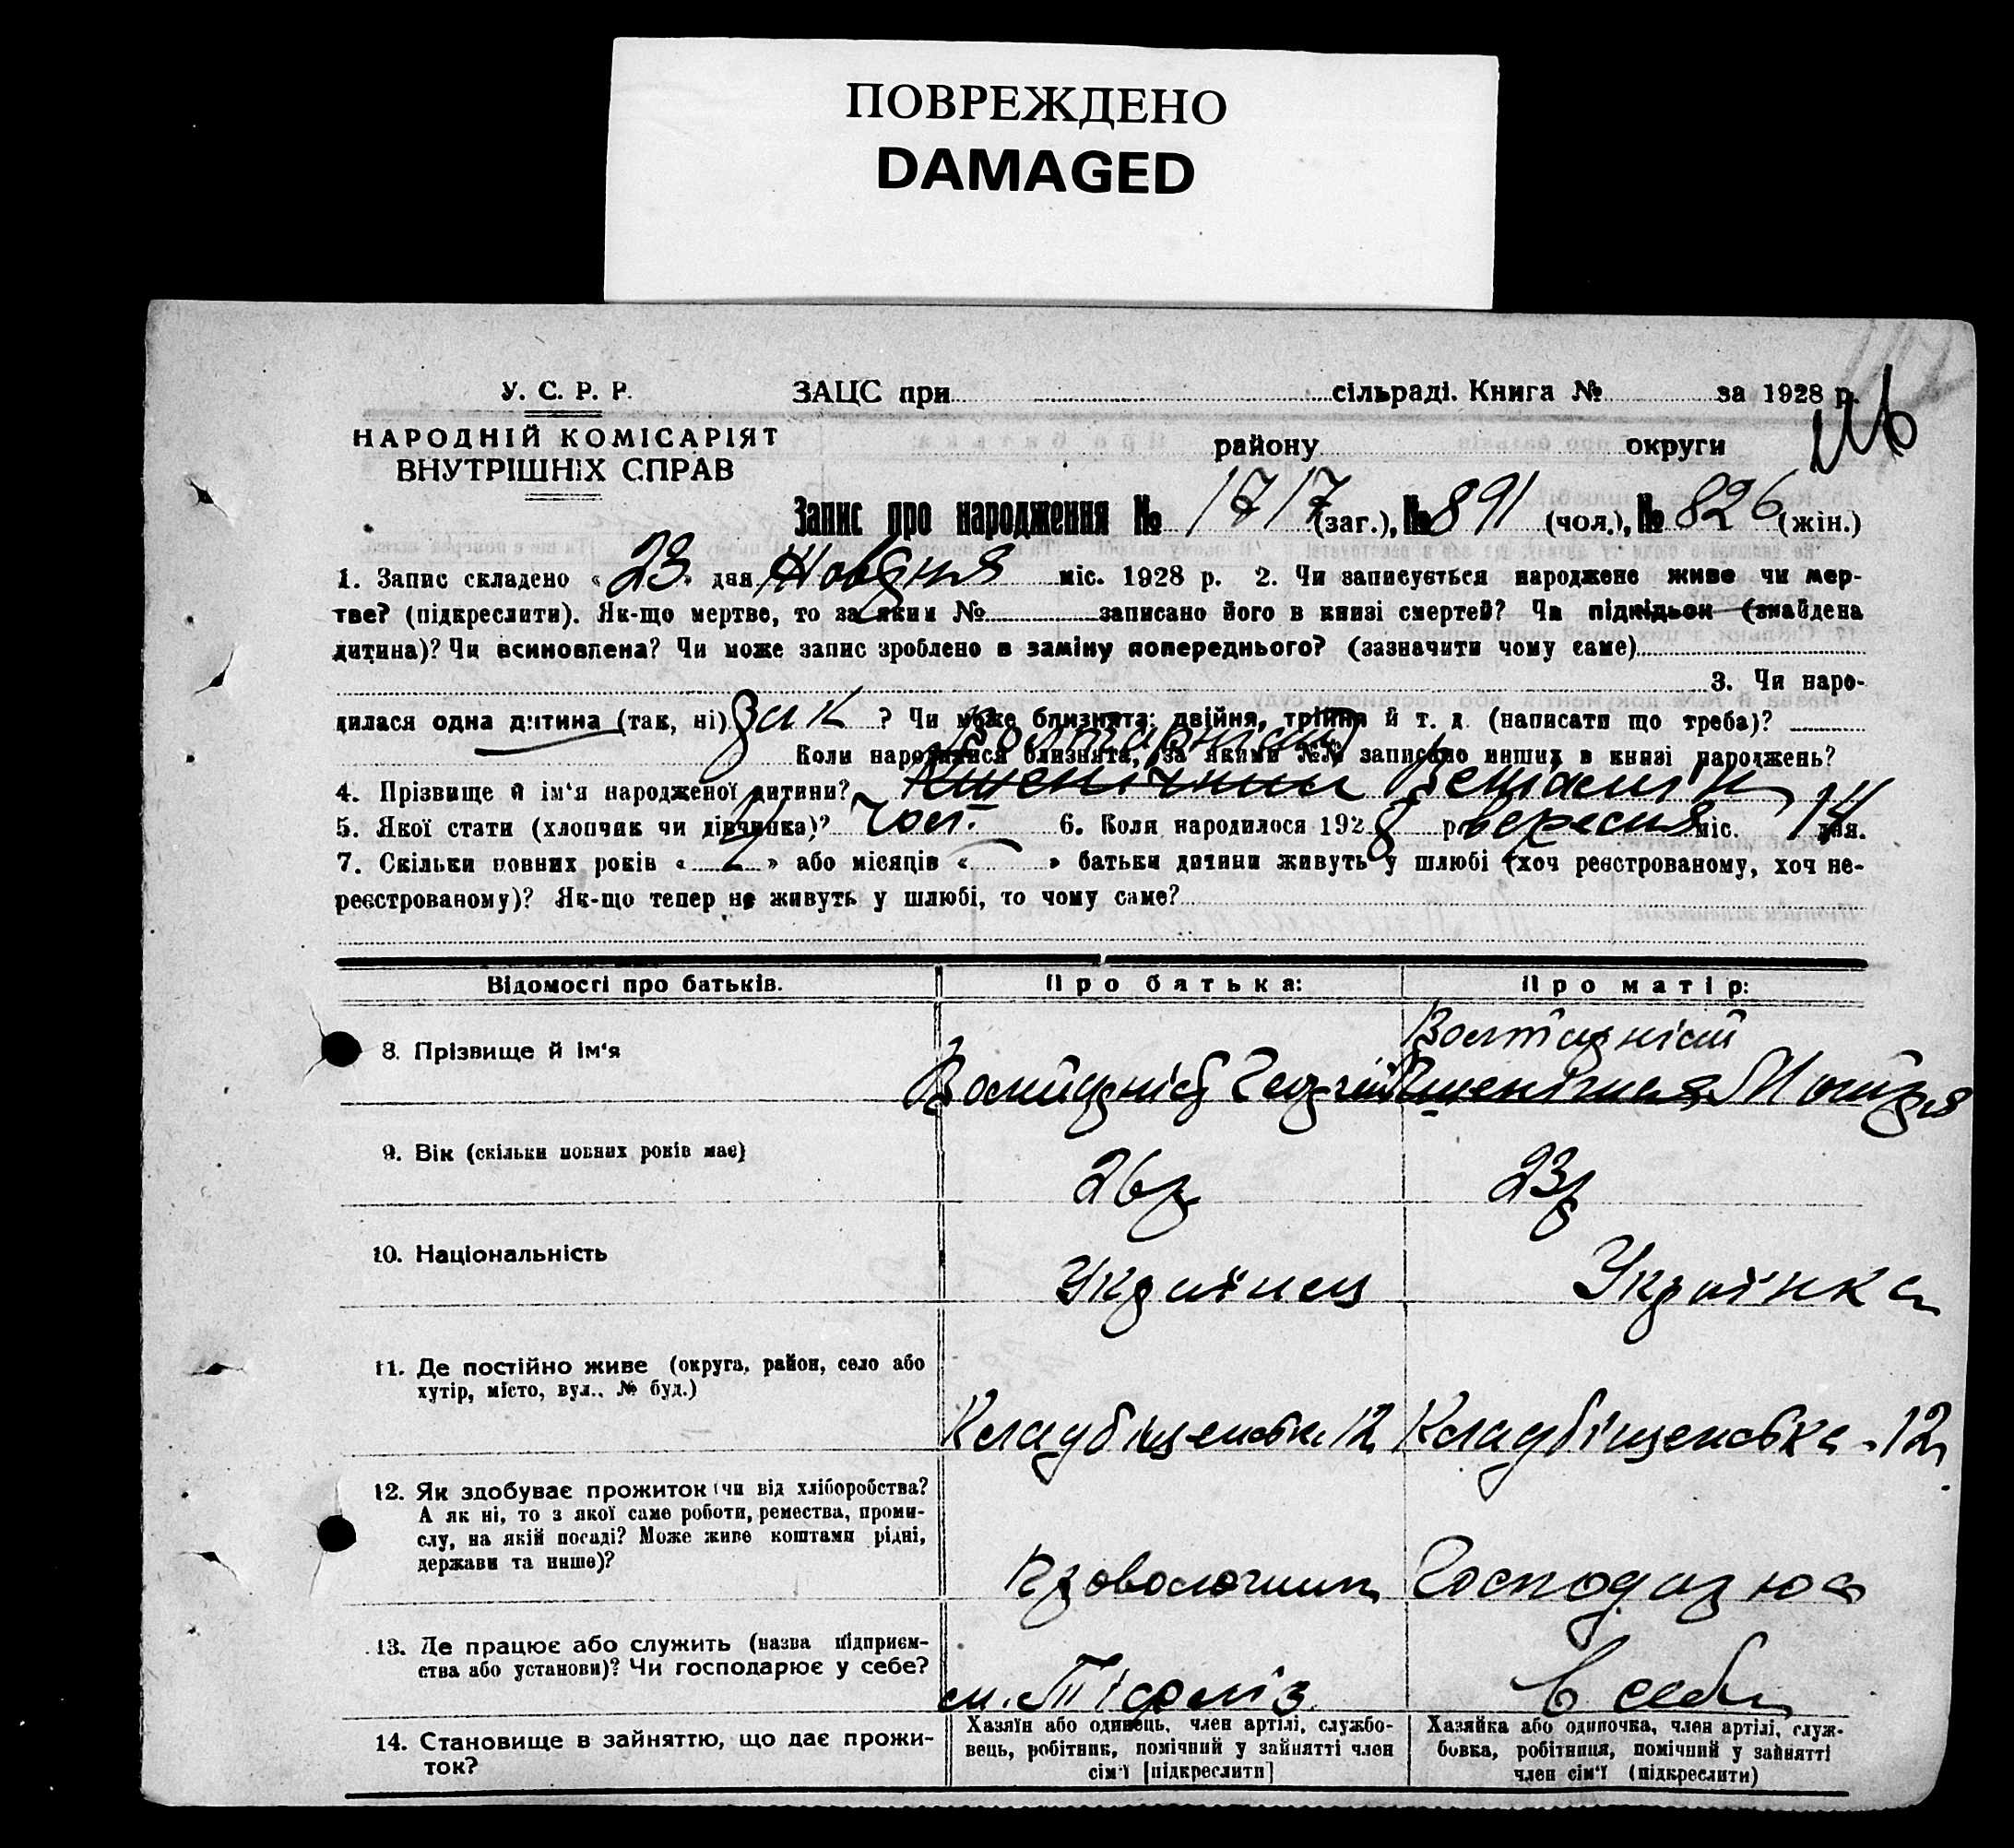 ПОВРЕЖДЕНО
DAMAGED
У. С. Р. Р.
ЗАЦС при сільраді. Книга № за 1928 р.
116
НАРОДНІЙ КОМІСАРІЯТ
ВНУТРІШНІХ СПРАВ
району округи
Запис про народження № 1717 (заг.), № 891 (чол.), № 826 (жін.)
1. Запис складено « 23 » дня Жовтня міс. 1928 р. 2. Чи записується народжене живе чи мер-
тве? (підкреслити). Як-що мертве, то за яким № записано його в книзі смертей? Чи підкідьок (знайдена
дитина)? Чи всиновлена? Чи може запис зроблено в заміну попереднього? (зазначити чому саме)
3. Чи наро-
дилася одна дитина (так, ні) так ? Чи може близнята: двійня, трійня й т. д. (написати що треба)?
Коли народилися близнята, за якими №№ записано инших в книзі народжень?
4. Прізвище й ім'я народженої дитини?
5. Якої статі (хлопчик чи дівчинка)? чол. 6. Коли народилося 1928 р. вересня міс. 14 дня.
7. Скільки повних років « » або місяців « » батьки дитини живуть у шлюбі (хоч реєстрованому, хоч не-
реєстрованому)? Як-що тепер не живуть у шлюбі, то чому саме?
Відомості про батьків. Про батька: Про матір:
8. Прізвище й ім'я Георгій Марія
9. Вік (скільки повних років має) 26 р 23 р
10. Національність Українец Українка
11. Де постійно живе (округа, район, село або
хутір, місто, вул., № буд.)
Кладбіщенська 12 Кладбіщенська 12
12. Як здобуває прожиток (чи від хліборобства?
А як ні, то з якої саме роботи, ремества, проми-
слу, на якій посаді? Може живе коштами рідні,
держави та инше)?
Господарює
13. Де працює або служить (назва підприєм-
ства або установи)? Чи господарює у себе?
в себе
14. Становище в зайняттю, що дає прожи-
ток?
Хазяїн або одинець, член артілі, службо-
вець, робітник, помічний у зайнятті член
сім'ї [підкреслити]
Хазяйка або одиночка, член артілі, служ-
бовка, робітниця, помічний у зайнятті
член сім'ї (підкреслити)